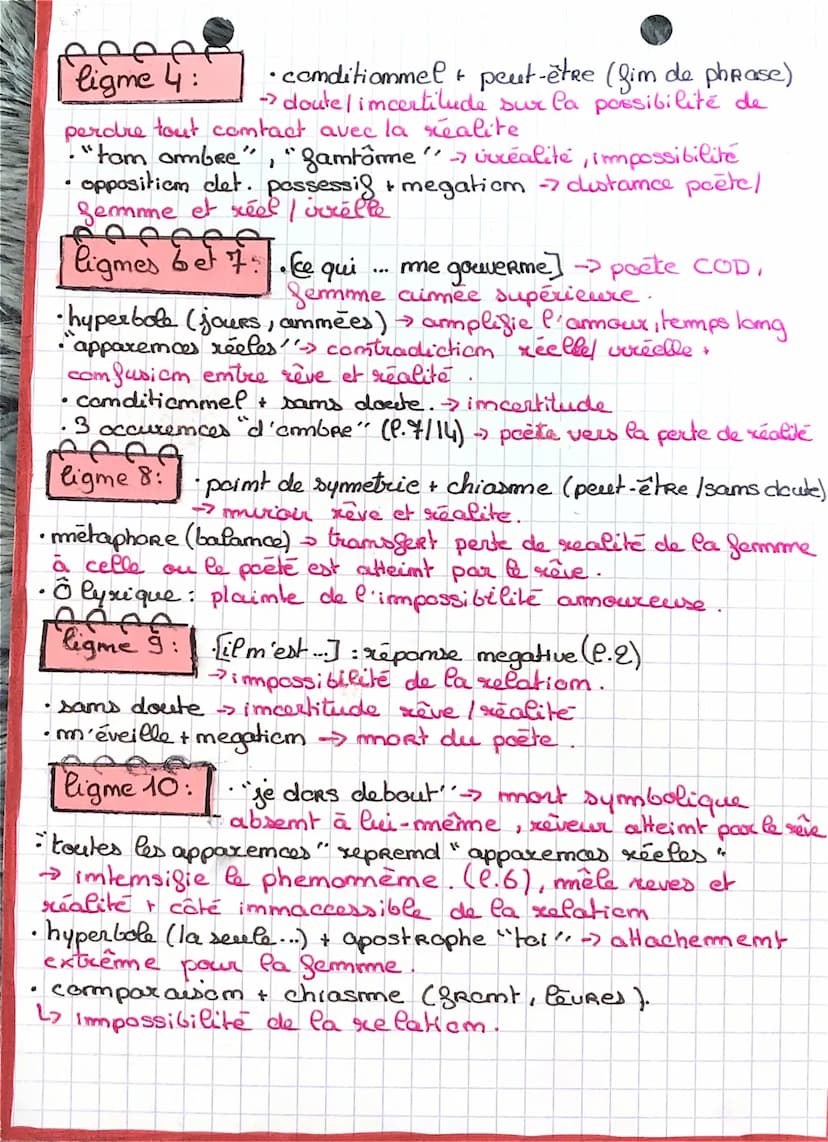 ligne 4 : · conditionnel + peut-être (fin de phrase)
-> doute/incertitude sur la possibilité de
perdre tout contact avec la réalite
· "ton ombre", "fantôme" -> irréalité, impossibilité
· opposition det. possessif + negation -> distance poète/
femme et réel / irrélle
lignes 6 et 7 : · [ce qui ... me gouverne] -> poète COD,
femme aimée supérieure.
· hyperbole (jours, années) -> amplifie l'amour, temps long
· "apparences réeles" -> contradiction réelle/ irréelle +
confusion entre rêve et réalité.
· conditionnel + sans doute. -> incertitude
· 3 occurences "d'ombre" (l.7/14) -> poète vers la perte de réalité
ligne 8 : · point de symmetrie + chiasme (peut-être/sans doute)
-> miroir rêve et réalite.
· mètaphore (balance) -> transfert perte de realité de la femme
à celle ou le poèté est atteint par le rêve.
· Ô lyrique : plainte de l'impossibilité amoureuse.
ligne 9 : · [il m'est ...] : réponse negative (l.2)
-> impossibilité de la relation.
· sans doute -> incertitude rêve / réalité
· m'éveille + negation -> mort du poète.
ligne 10 : · "je dors debout" -> mort symbolique
absent à lui-même, rêveur atteint par le rêve
· "toutes les apparences" reprend "apparences réeles"
-> intensifie le phenomème. (l.6), mêle reves et
réalité + côté innaccessible de la relation
· hyperbole (la seule...) + apostrophe "toi" -> attachement
extrême pour la femme.
· comparaison + chiasme (front, lèvres).
↳ impossibilité de la relation.